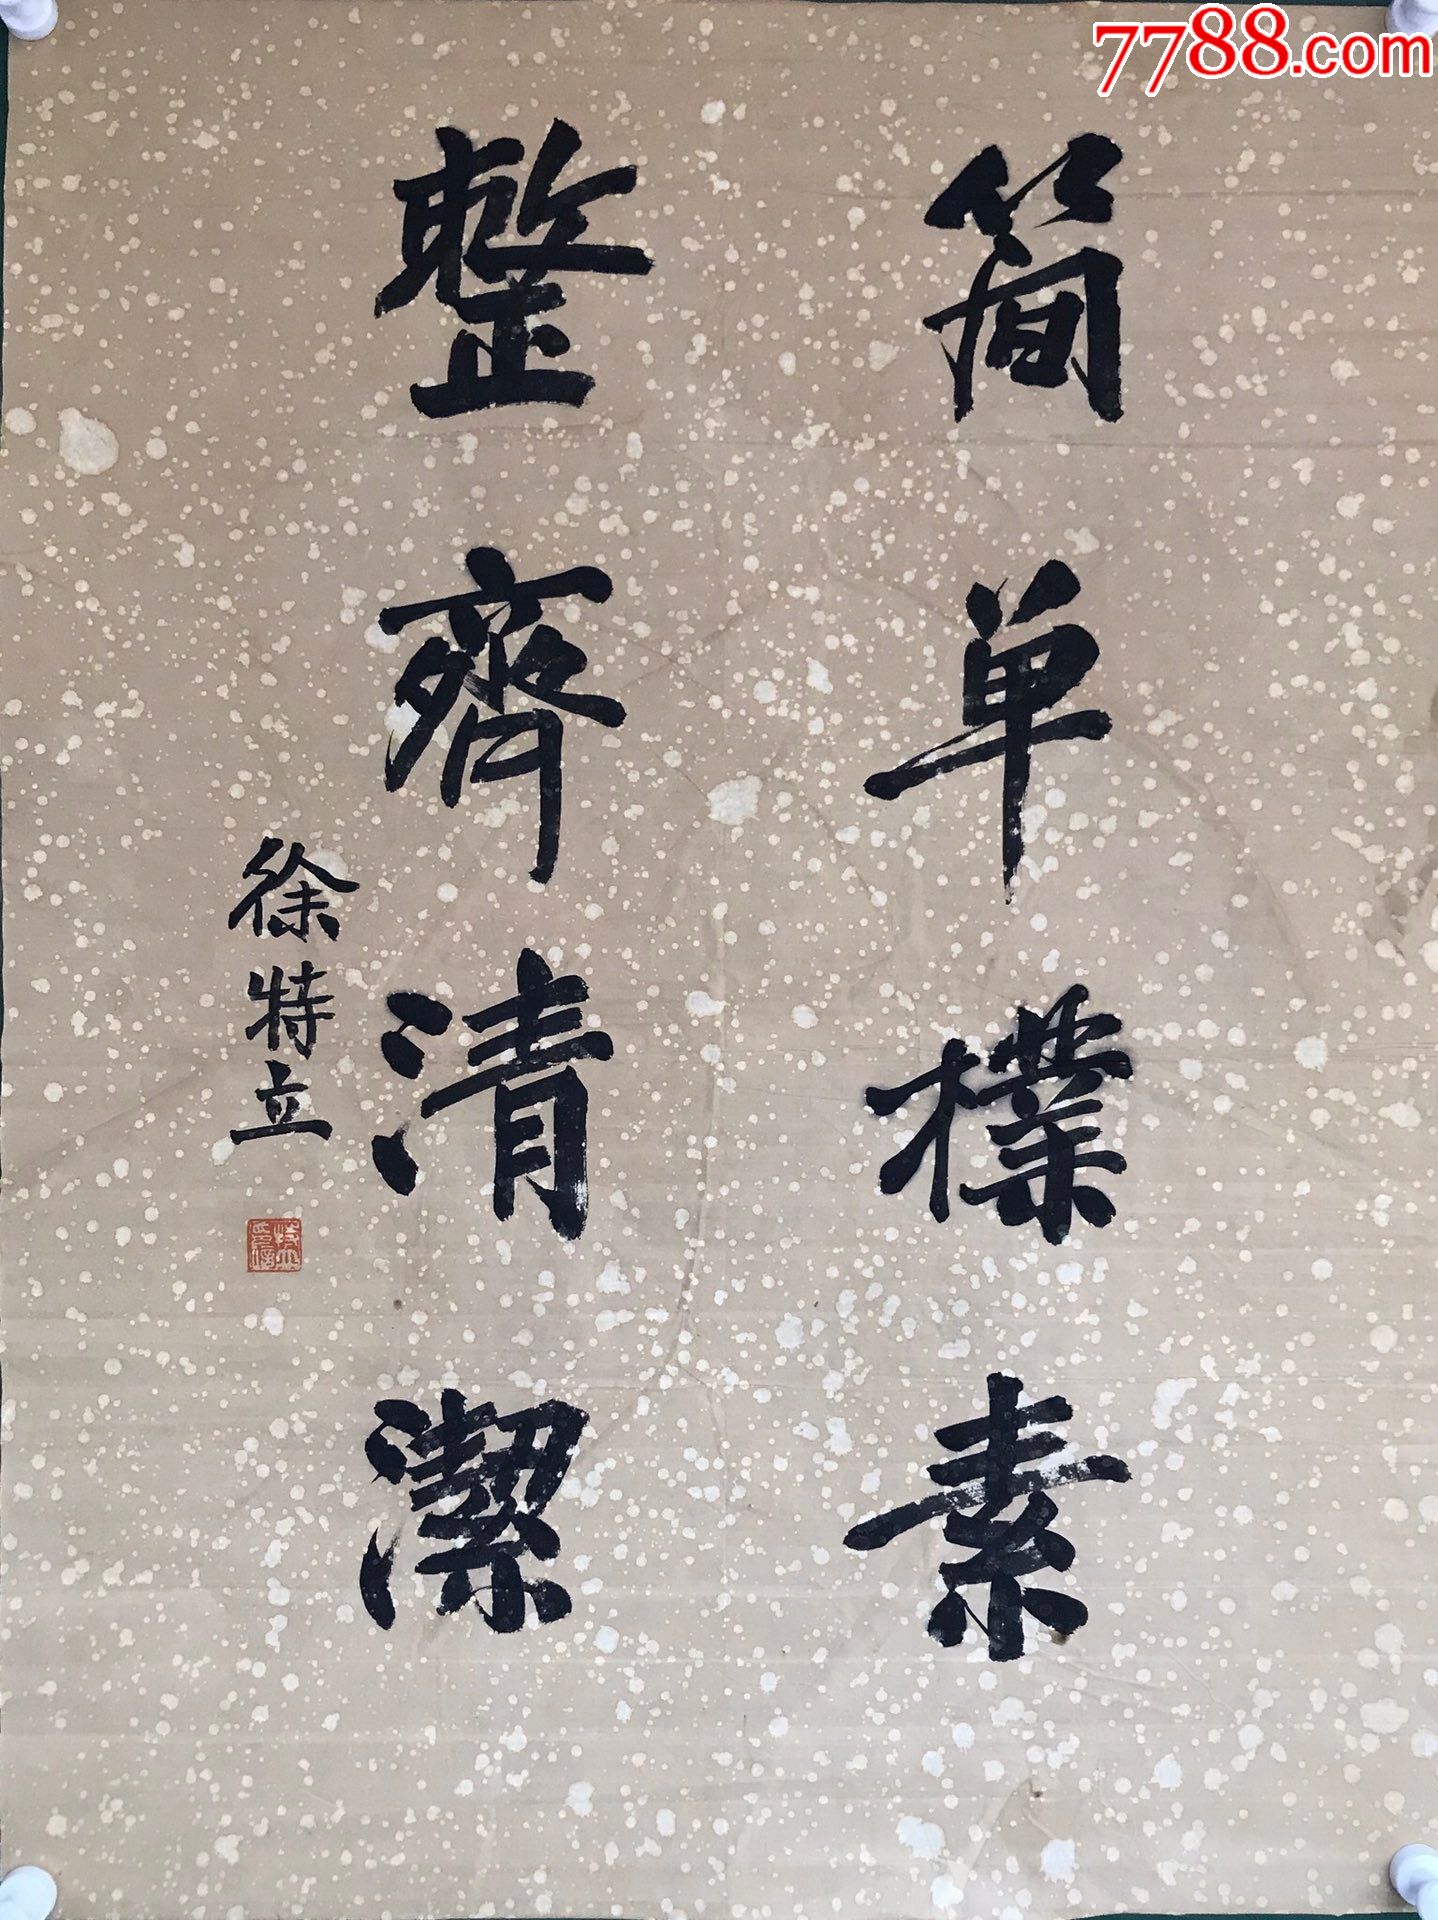 7788.com
简单樸素
整齊清潔
徐特立